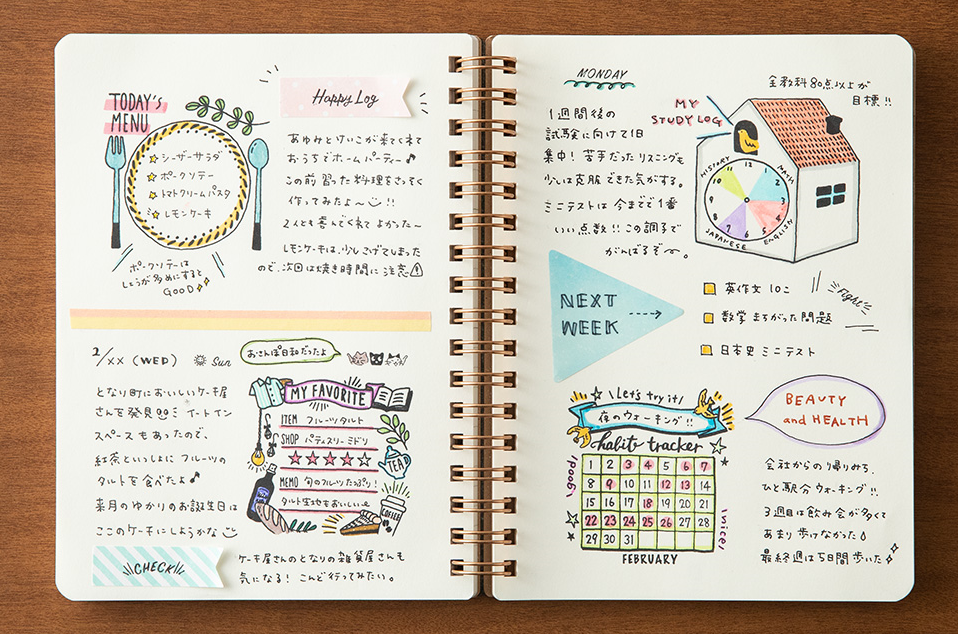 TODAY'S
MENU
シーザーサラダ
ポークソテー
トマトクリームパスタ
レモンケーキ
ポークソテーは
しょうが多めにすると
GOOD
Happy Log
あゆみとけいこが来てくれて
おうちでホームパーティー♪
この前習った料理をさっそく
作ってみたよ〜!!
2人とも喜んでくれてよかった〜
レモンケーキは、少しこげてしまった
ので、次回は焼き時間に注意
2/××(WED) Sun
おさんぽ日和だったよ
となり町においしいケーキ屋
さんを発見!! イートイン
スペースもあったので、
紅茶といっしょにフルーツの
タルトを食べたよ♪
来月のゆかりのお誕生日は
ここのケーキにしようかな
MY FAVORITE
ITEM フルーツタルト
SHOP パティスリーミドリ
★★★★☆
MEMO 旬のフルーツたっぷり!
タルト生地もおいしい〜
TEA
COFFEE
CHECK!
ケーキ屋さんのとなりの雑貨屋さんも
気になる! こんど行ってみたい。
MONDAY
1週間後の
試験に向けて1日
集中! 苦手だったリスニングも
少しは克服できた気がする。
ミニテストは今までで1番
いい点数!! この調子で
がんばるぞ〜。
全教科80点以上が
目標!!
MY
STUDY LOG
HISTORY
MATH
JAPANESE
ENGLISH
12
1
2
3
4
5
6
7
8
9
10
11
NEXT
WEEK
英作文10こ
数学まちがった問題
日本史ミニテスト
Fight
Let's try it!
夜のウォーキング!!
habit tracker
good!
nice!
1 2 3 4 5 6 7
8 9 10 11 12 13 14
15 16 17 18 19 20 21
22 23 24 25 26 27 28
29 30 31
FEBRUARY
BEAUTY
and HEALTH
会社からの帰りみち、
ひと駅分ウォーキング!!
3週目は飲み会が多くて
あまり歩けなかった
最終週は5日間歩いた